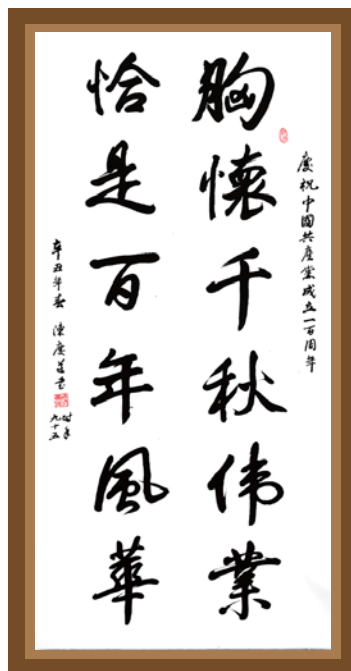 慶祝中國共產黨成立一百周年
胸懷千秋伟業
恰是百年風華
辛丑年春 陳廣书
时年
九十五